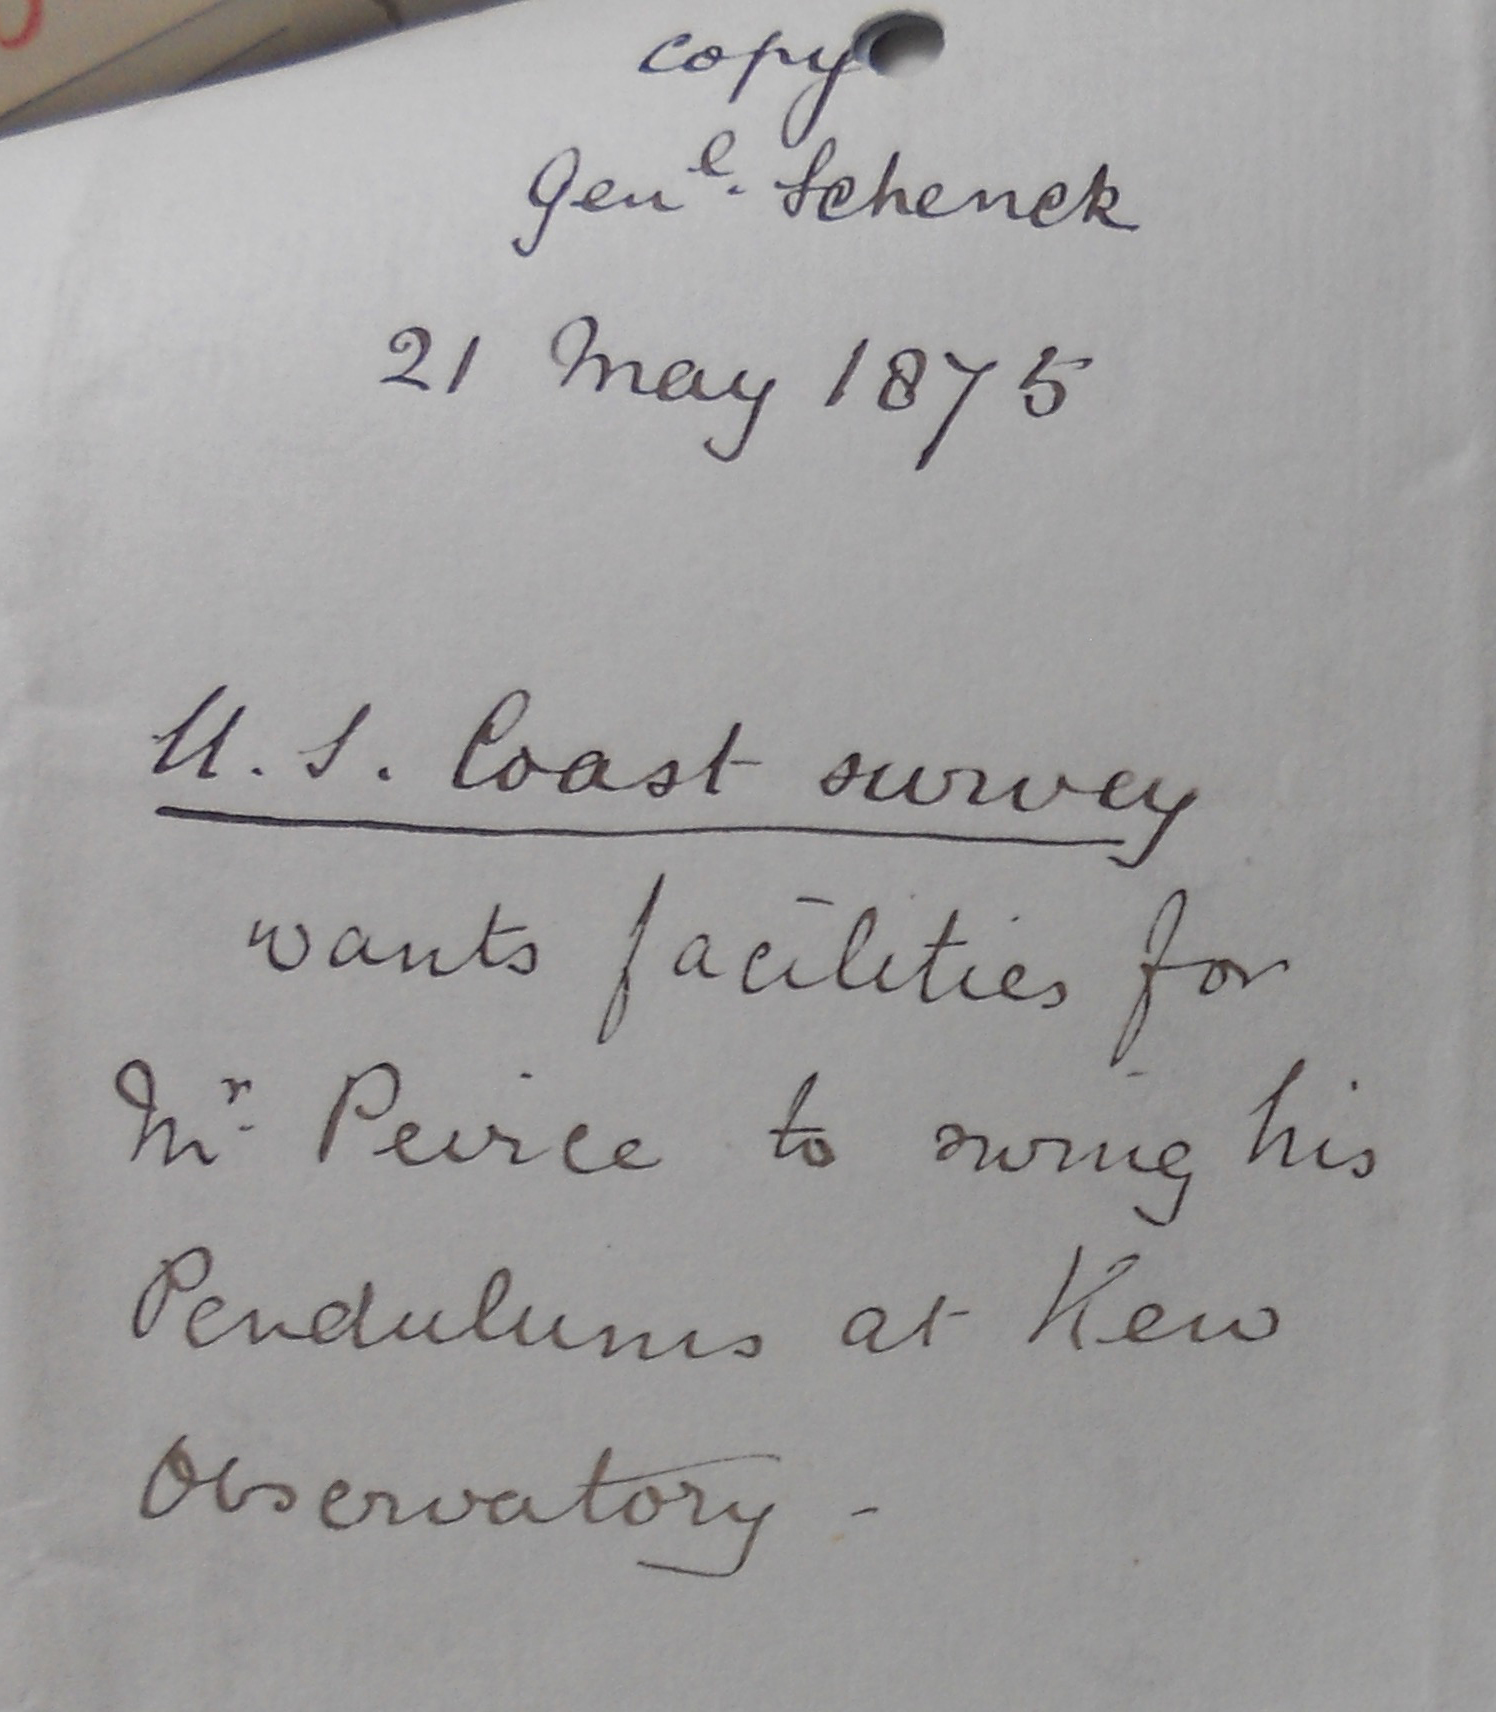 copy
Genl. Schenck
21 May 1875
U.S. Coast survey
wants facilities for
Mr. Peirce to swing his
Pendulums at Kew
Observatory -